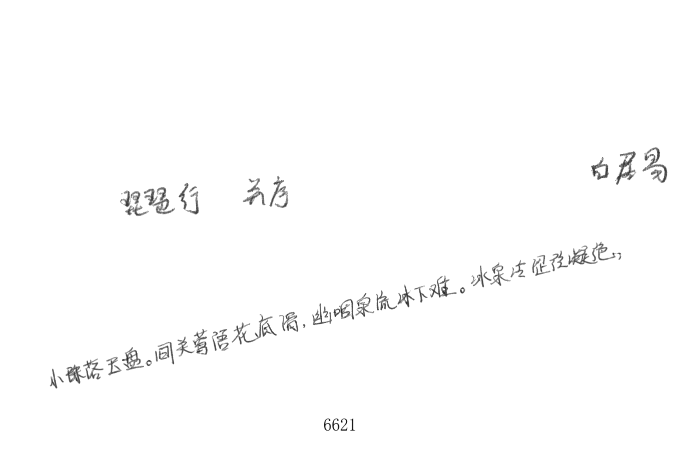 琵琶行 并序
白居易
小珠落玉盘。间关莺语花底滑,幽咽泉流冰下难。冰泉冷涩弦凝绝,,
6621